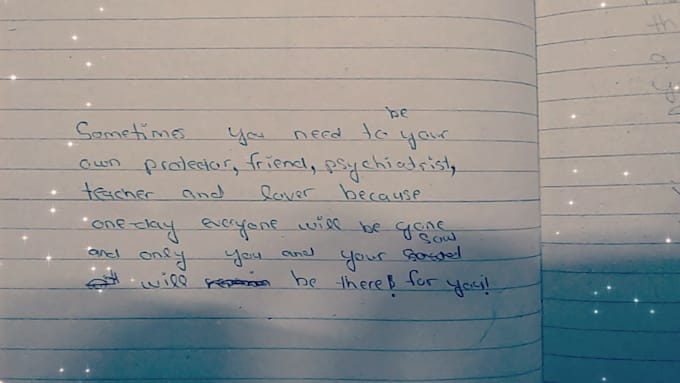 Sometimes you need to be your
own protector, friend, psychiatrist,
teacher and lover because
one day everyone will be gone
and only you and your soul
will be there! for you!